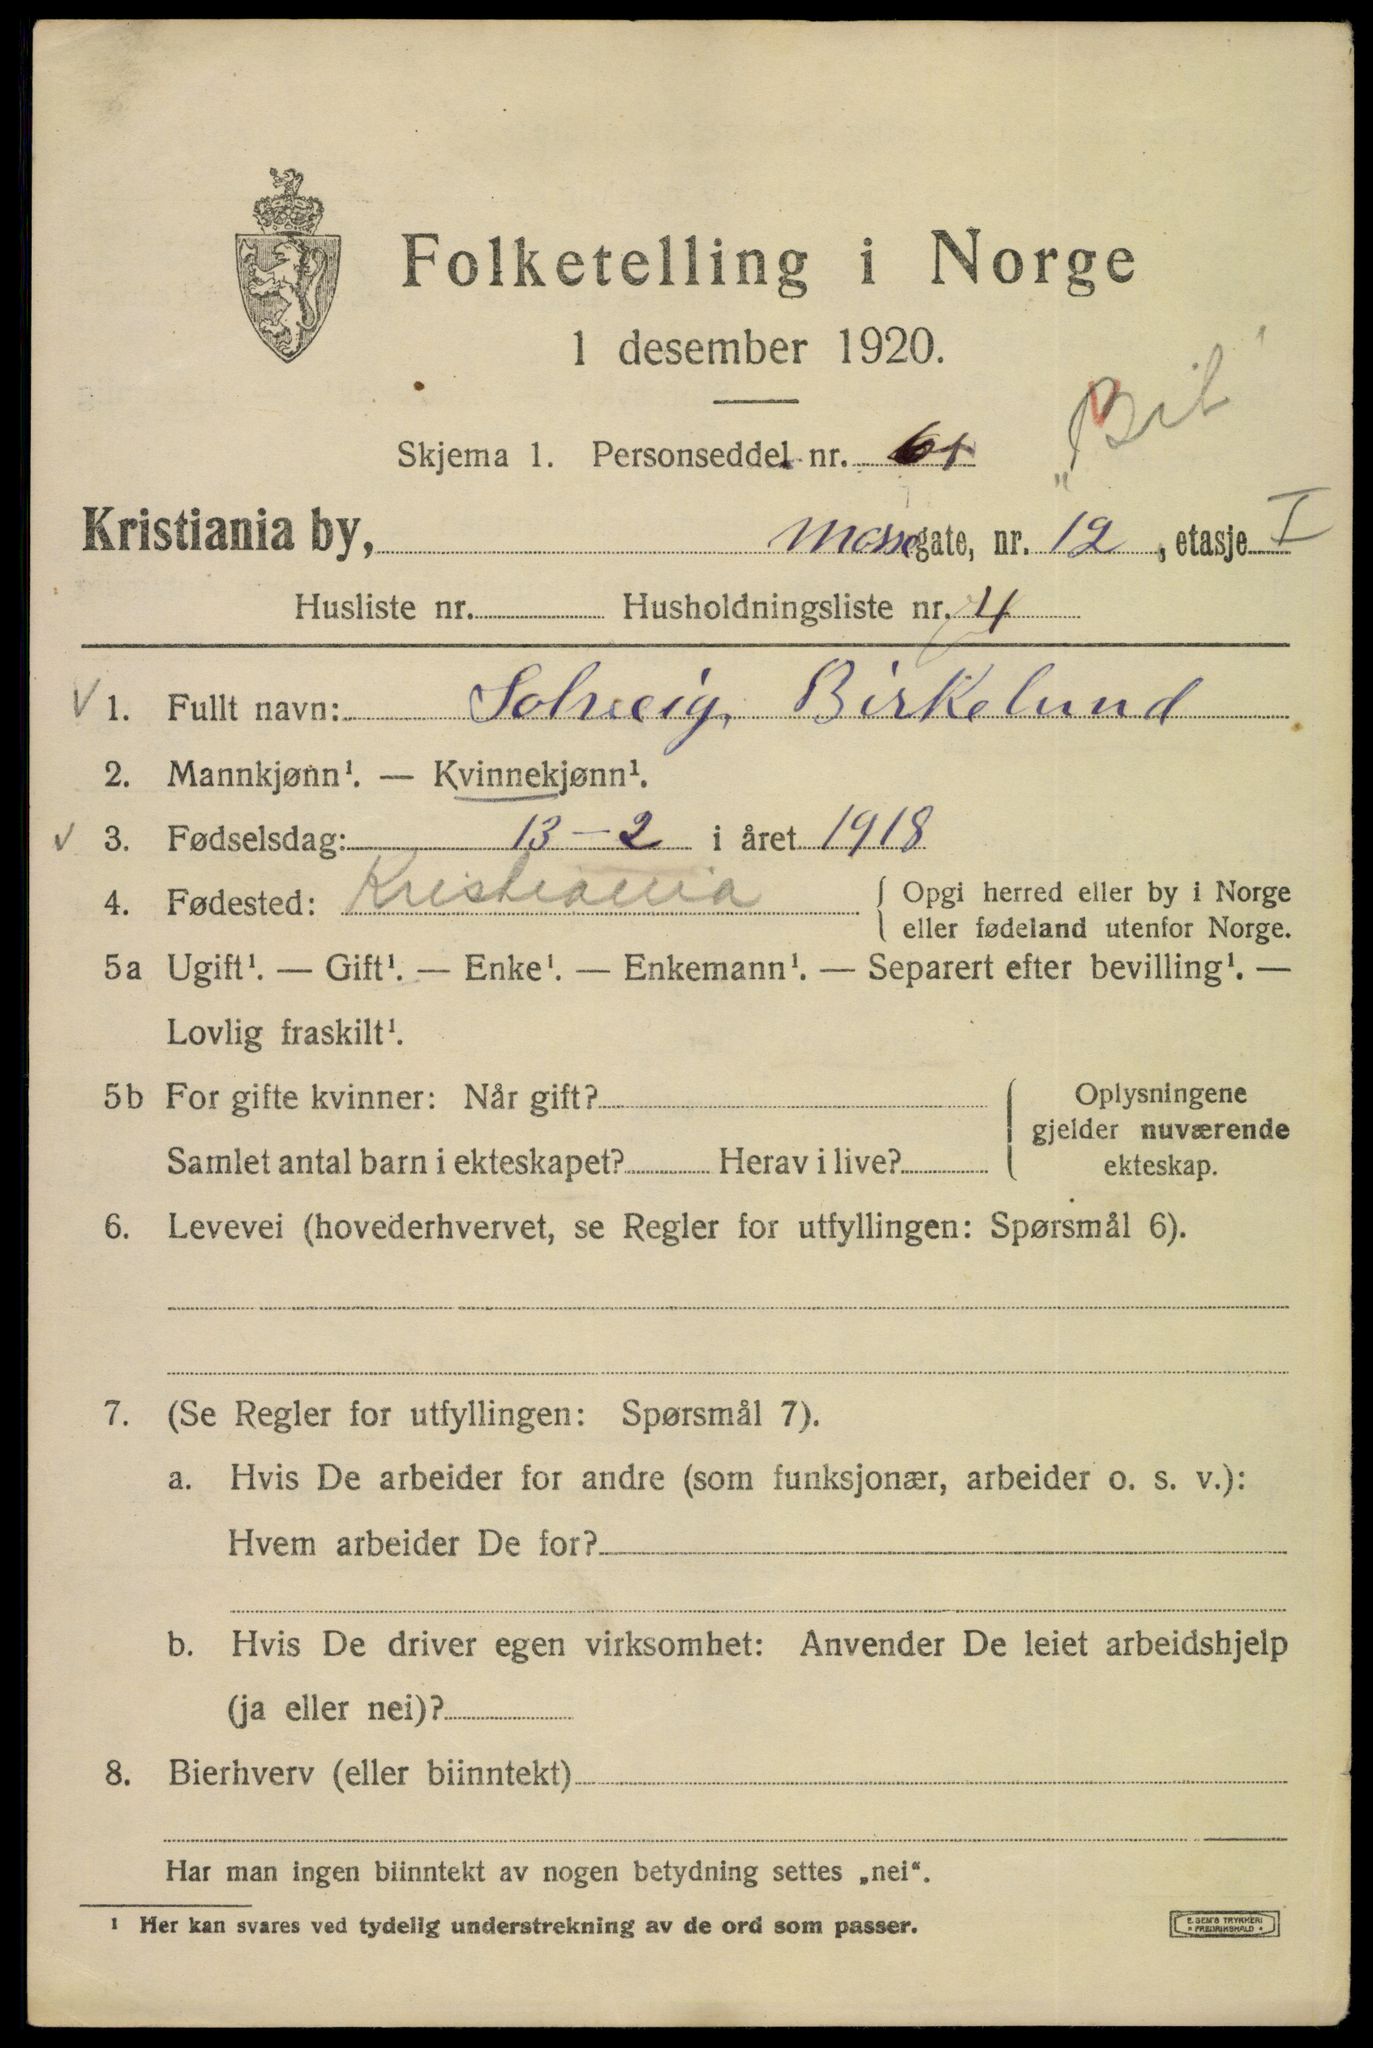 Folketelling i Norge
1 desember 1920.
„Bil"
Skjema 1. Personseddel nr.
Kristiania by, Mossegate, nr. 12, etasje I
Husliste nr. Husholdningsliste nr. 4
1. Fullt navn: Solveig Birkelund
2. Mannkjønn¹. — Kvinnekjønn¹.
3. Fødselsdag: 13-2 i året 1918
4. Fødested: Kristiania { Opgi herred eller by i Norge
eller fødeland utenfor Norge.
5a Ugift¹. — Gift¹. — Enke¹. — Enkemann¹. — Separert efter bevilling¹. —
Lovlig fraskilt¹.
5b For gifte kvinner: Når gift?
Samlet antal barn i ekteskapet? Herav i live?
Oplysningene
gjelder nuværende
ekteskap.
6. Levevei (hovederhvervet, se Regler for utfyllingen: Spørsmål 6).
7. (Se Regler for utfyllingen: Spørsmål 7).
a. Hvis De arbeider for andre (som funksjonær, arbeider o. s. v.):
Hvem arbeider De for?
b. Hvis De driver egen virksomhet: Anvender De leiet arbeidshjelp
(ja eller nei)?
8. Bierhverv (eller biinntekt)
Har man ingen biinntekt av nogen betydning settes „nei“.
¹ Her kan svares ved tydelig understrekning av de ord som passer.
E. SEM'S TRYKKERI
FREDRIKSHALD